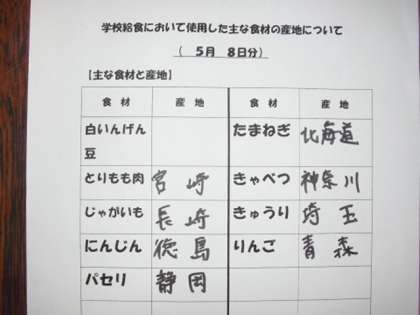 学校給食において使用した主な食材の産地について
( 5月 8日分)
【主な食材と産地】
食材 産地 食材 産地
白いんげん豆 たまねぎ 北海道
とりもも肉 宮崎 きゃべつ 神奈川
じゃがいも 長崎 きゅうり 埼玉
にんじん 徳島 りんご 青森
パセリ 静岡